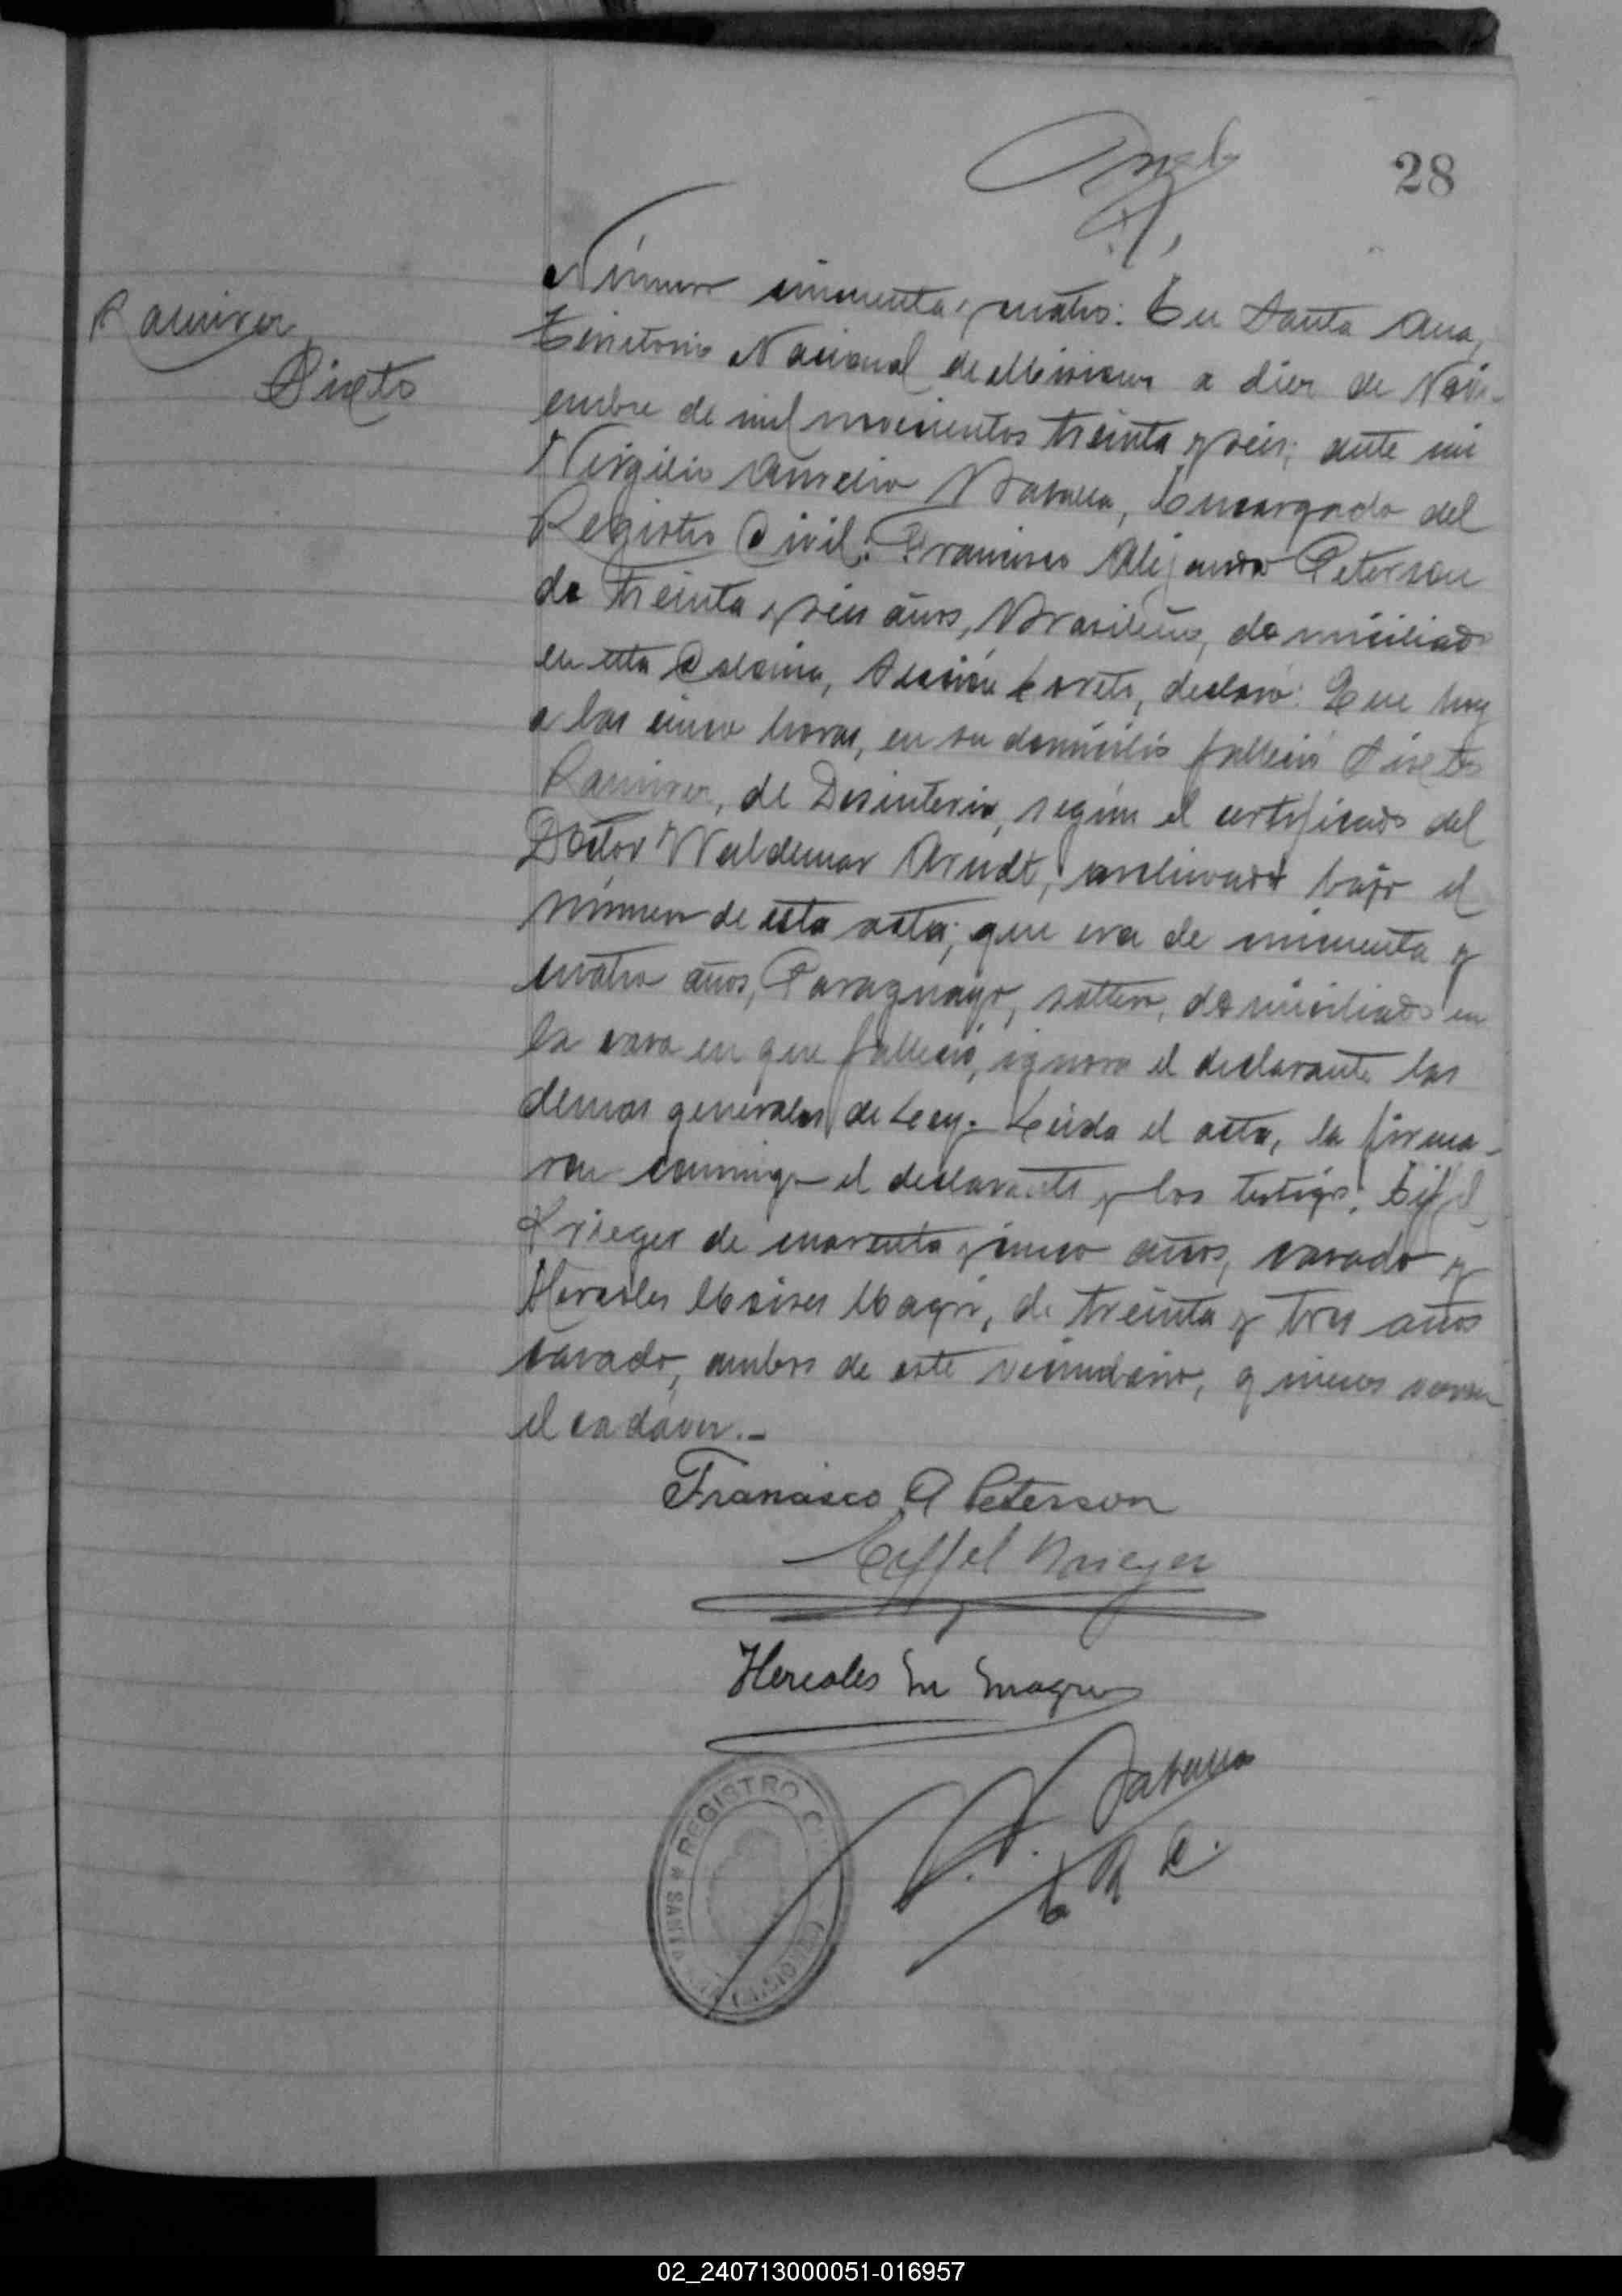 28
Ramirez
Sixto
Número cincuenta y cuatro: En Santa Ana,
Territorio Nacional de Misiones a diez de Novi-
embre de mil novecientos treinta y seis; ante mi
Virgilio Aurelio Encargado del
Registro Civil: Francisco Alejandro Peterson
de treinta y seis años, Brasileño, domiciliado
en esta Colonia, Sección Loreto, declaró: Que hoy
a las cinco horas, en su domicilio falleció Sixto
Ramirez, de Desinteria, según el certificado del
Doctor Waldemar Arndt, archivado bajo el
número de esta acta; que era de cincuenta y
cuatro años, Paraguayo, soltero, domiciliado en
la casa en que falleció, ignora el declarante las
demas generales de Ley.- Leída el acta, la firma-
ron conmigo el declarante y los testigos: Eiffel
Krieger de cuarenta y cinco años, casado y
Hercoles Moises Magri, de treinta y tres años
casado, ambos de este vecindario, quienes vieron
el cadáver.-
Francisco A Peterson
Eiffel Krieger
Hercoles M Magri
E R C.
REGISTRO
SANTA
02_240713000051-016957